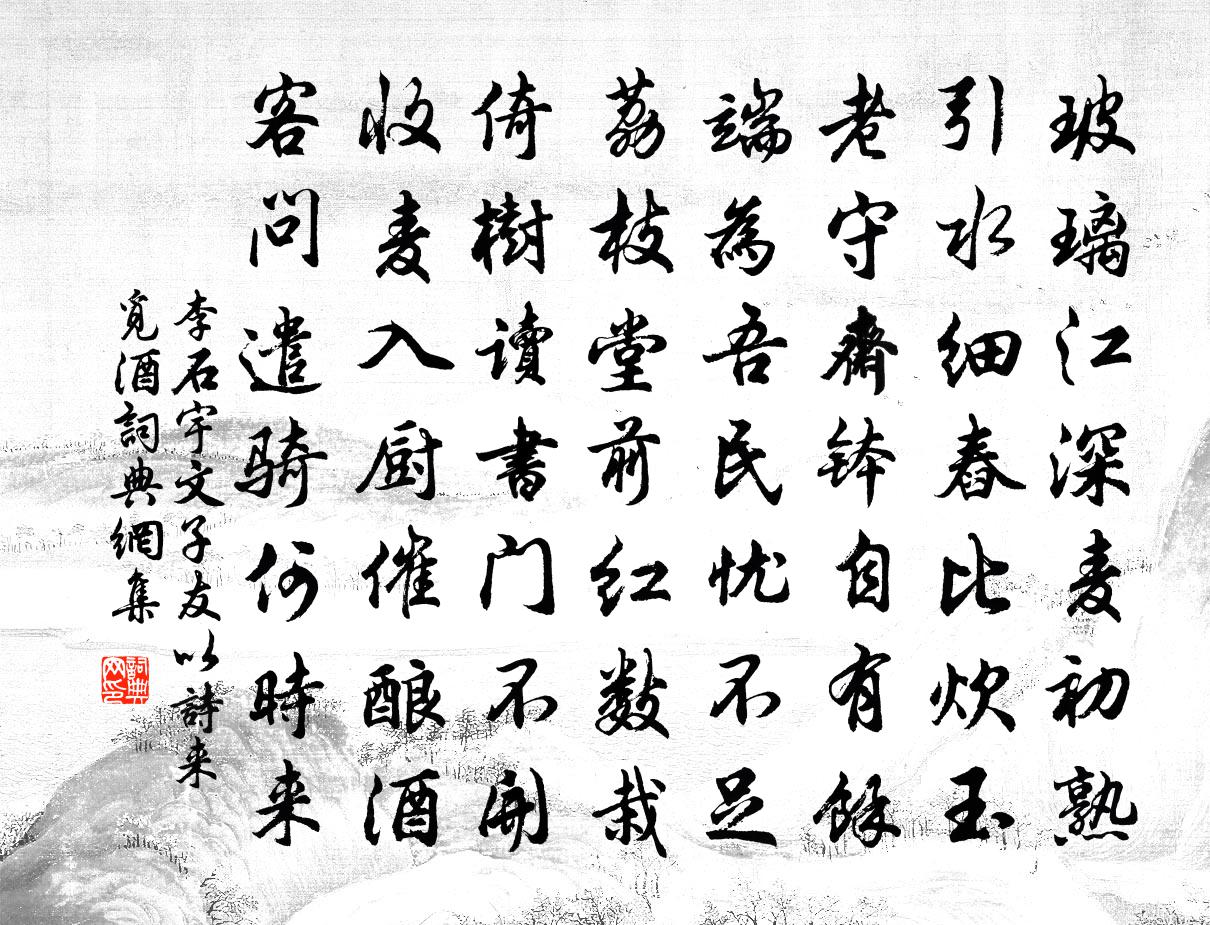 玻璃江深麦初熟
引水细舂比炊玉
老守齋钵自有餘
端為吾民忧不足
荔枝堂前红数栽
倚樹讀書门不開
收麦入厨催酿酒
客问遣骑何時来
李石宇文子友以詩来
覓酒詞典網集
詞典网印